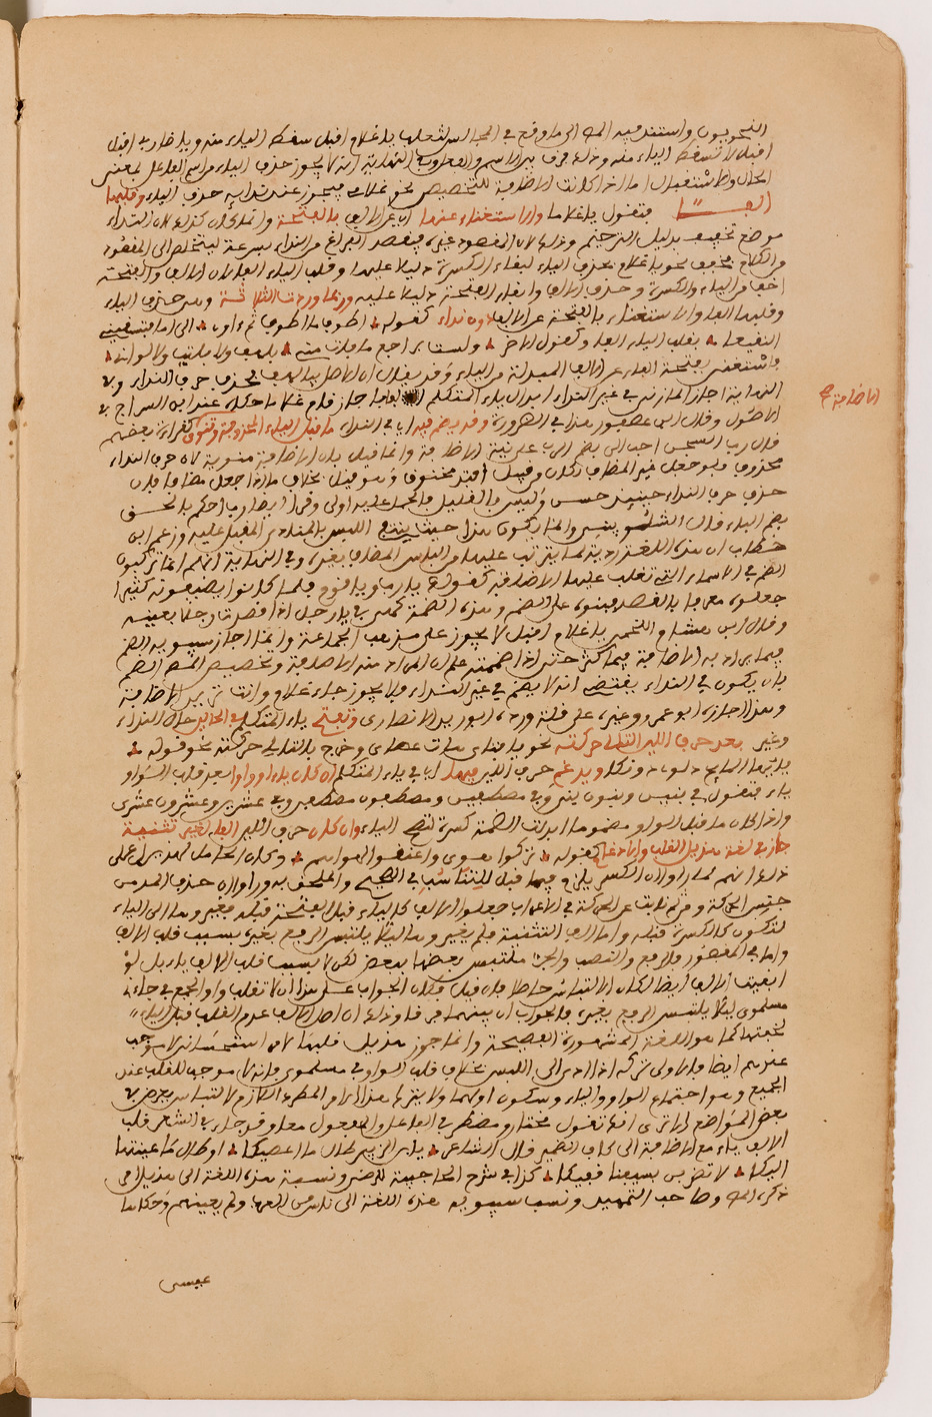 النحويون واستند فيه الى ما وقع في المجالس لثعلب يا غلام اقبل تسقط الياء منه ويا ضاربي اقبل
اقبل لا تسقط الياء منه وذلك فرق بين الاسم والفعل وفي النهاية انه لا يجوز حذف الياء من اسم الفاعل بمعنى
الحال والاستقبال اما اذا كانت الاضافة للتخصيص نحو غلامي فيجوز عند ندائه حذف الياء وقلبها
الفا فتقول يا غلاما والاستغناء عنها اي عن الالف بالفتحة وانما كان كذلك لان النداء
موضع تخفيف بدليل الترخيم وذلك لان المقصود غيره فيقصد الفراغ من النداء بسرعة ليتخلص الى المقصود
من الكلام فخفف نحو يا غلام بحذف الياء لبقاء الكسرة دليلا عليها وقلب الياء الفا لان الالف والفتحة
اخف من الياء والكسرة وحذف الالف وابقاء الفتحة دليلا عليه وربما وردت الثلاثة وهي حذف الياء
وقلبها الفا والاستغناء بالفتحة عن الالف دون نداء كقوله اطوف ما اطوف ثم آوي الى اما
النقيعا بقلب الياء الفا وكقول الاخر ولست براجع ما فات مني بلهف ولا بليت ولا لواني
فاستغنى بفتحة الفاء عن الالف المبدلة من الياء وقد يقال ان الاصل يا لهف فحذف حرف النداء وفي
النهاية اجاز المازني في غير النداء ابدال ياء المتكلم الفا جاز قام غلاما حكاه عنه ابن السراج في
الاضافة صح
الاصول وقال ابن عصفور هذا في الضرورة وقد يضم فيه اي في النداء ما قبل الياء المحذوفة وتنوى كقراءة بعضهم
قال رب السجن احب الي بضم الرب غير نية الاضافة وانما قيل بان الاضافة منوية لان حرف النداء
محذوف ولو جعل غير المضاف لكان وقيل افتد مخنوق وهو قليل بخلاف ما اذا جعل مضافا فان
حذف حرف النداء حينئذ حسن وليس بالقليل فالحمل عليه اولى وقرا ايضا رب احكم بالحق
بضم الباء قال الشلوبين وانما يكون هذا حيث ينتفي اللبس بالمنادى المقبل عليه وزعم ابن
خطاب ان هذه اللغة ردية لما يترتب عليها من التباس المضاف بغيره وفي النهاية انهم انما يرتكبون
الضم في الاسماء التي تغلب عليها الاضافة كقولهم يا رب ويا قوم فلما كانوا يضيفونه كثيرا
جعلوه معرفا بالقصد فبنوه على الضم وهذه الضمة كهي في يا رجل اذا قصدت رجلا بعينه
وقال ابن هشام اللخمي يا غلام اقبل لا يجوز على مذهب الجماعة وانما اجاز سيبويه الضم
فيما يراد به الاضافة فيما كثر حتى اذا ضممته علم ان المراد منه الاضافة وتخصيص المص الضم
بان يكون في النداء يقتضي انه لا يضم في غير النداء فلا يجوز جاء غلام وانت تريد الاضافة
وهذا اجازه ابو عمرو وغيره على قلة ورده ابو زيد الانصاري وتفتح ياء المتكلم في الحالين حال النداء
وغيره بعد حرف اللين التالي حركته نحو يا فتاي هات عصاي وخرج بالتالي حركته نحو قوله
يايها السايح دلوي دونكا ويدغم حرف اللين فيها اي في ياء المتكلم ان كان ياء او واوا بعد قلب الواو
ياء فتقول في بنين وبنون بني وفي مصطفين ومصطفون مصطفي وفي عشرين وعشرون عشري
واذا كان ما قبل الواو مضموما ابدلت الضمة كسرة لتصح الياء وان كان حرف اللين الفا لغير تثنية
جاز في لغة هذيل القلب والادغام كقوله تركوا هوي واعنقوا لهواهم وكان الحامل لهذيل على
ذلك انهم لما راوا ان الكسر يلزم فيما قبل الياء للتناسب في الصحيح والملحق به وراوا ان حرف المد من
جنس الحركة ومن ثم نابت عن الحركة في الاعراب جعلوا الالف كالياء قبل الفتحة قبله فغيروها الى الياء
لتكون كالكسرة قبله واما الف التثنية فلم يغيروها لئلا يلتبس الرفع بغيره بسبب قلب الالف
واما في المقصور فالرفع والنصب والجر ملتبس بعضها ببعض لكن لا بسبب قلب الالف ياء بل لو
ابقيت الالف ايضا لكان الالتباس حاصلا فان قيل فكان الجواب على هذا ان لا تقلب واو الجمع في جاءني
مسلموي لئلا يلتبس الرفع بغيره فالجواب ان بينهما فرقا وذلك ان اصل الالف عدم القلب قبل الياء
لخفتها كما هو اللغة المشهورة الفصيحة وانما جوز هذيل قلبها لامر استحساني لا موجب
عندهم ايضا فالاولى تركه اذا ادى الى اللبس بخلاف قلب الواو في مسلموي فانه لامر موجب للقلب عند
الجميع وهو اجتماع الواو والياء وسكون اولهما ولا يترك هذا الامر المطرد اللازم لالتباس يعرض في
بعض المواضع الا ترى انك تقول مختار ومضطر في الفاعل والمفعول معا وقد جاء في الشعر قلب
الالف ياء مع الاضافة الى كاف الضمير قال الشاعر يا بن الزبير طال ما عصيكا او طال ما عنيتنا
اليكا لا تضربن بسيفنا قفيكا كذا في شرح الحاجبية للرضي ونسبة هذه اللغة الى هذيل هي ما
ذكره المص وصاحب التمهيد ونسب سيبويه هذه اللغة الى ناس من العرب ولم يعينهم وحكاها
عيسى